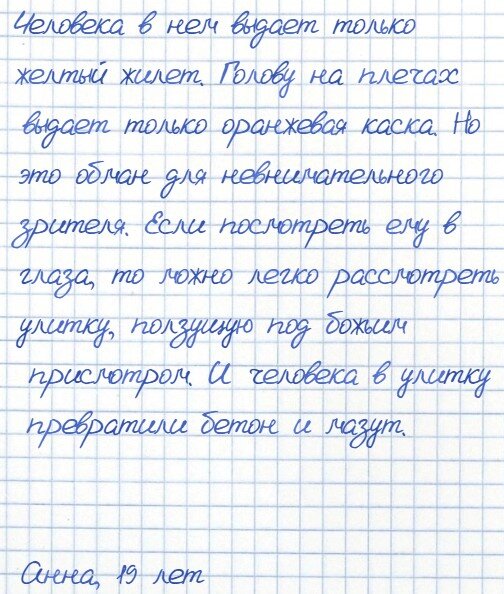 Человека в нем выдает только
желтый жилет. Голову на плечах
выдает только оранжевая каска. Но
это обман для невнимательного
зрителя. Если посмотреть ему в
глаза, то можно легко рассмотреть
улитку, ползущую под божьим
присмотром. И человека в улитку
превратили бетон и мазут.
Анна, 19 лет